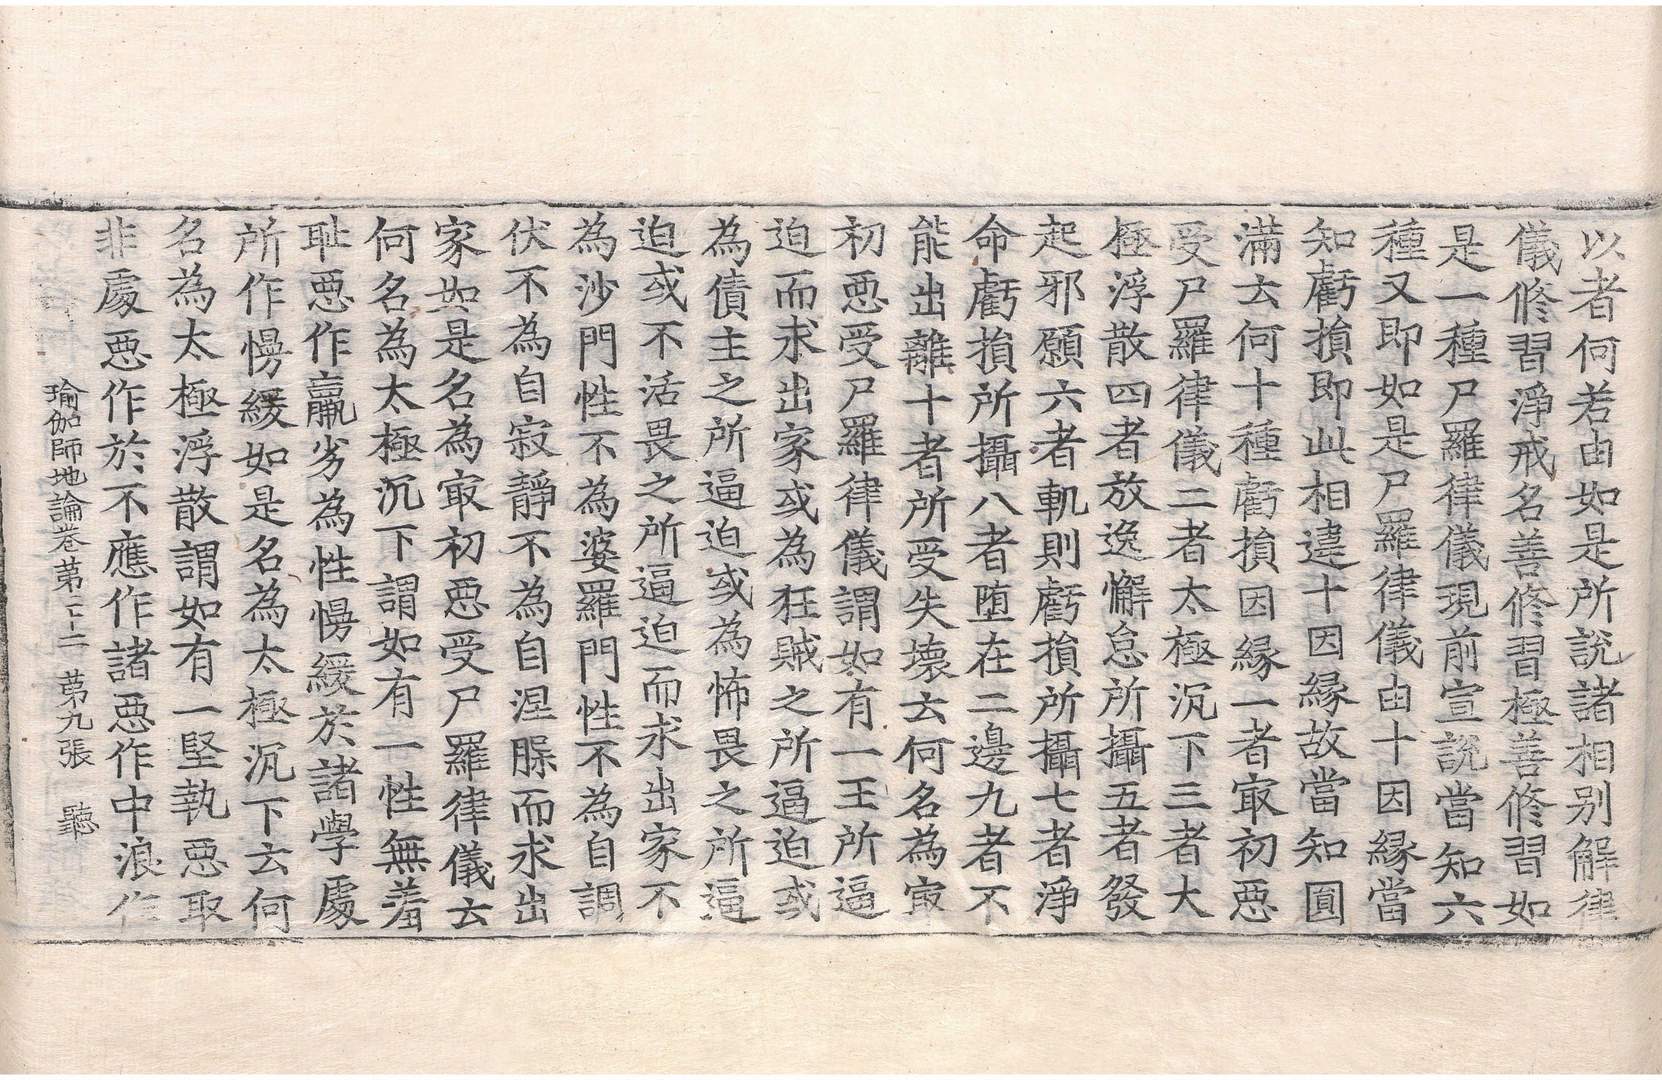 以者何若由如是所說諸相別解律
儀修習淨戒名善修習極善修習如
是一種尸羅律儀現前宣說當知六
種又即如是尸羅律儀由十因緣當
知虧損即此相違十因緣故當知圓
滿云何十種虧損因緣一者㝡初惡
受尸羅律儀二者太極沉下三者大
極浮散四者放逸懈怠所攝五者發
起邪願六者軌則虧損所攝七者淨
命虧損所攝八者墮在二邊九者不
能出離十者所受失壞云何名為㝡
初惡受尸羅律儀謂如有一王所逼
迫而求出家或為狂賊之所逼迫或
為債主之所逼迫或為怖畏之所逼
迫或不活畏之所逼迫而求出家不
為沙門性不為婆羅門性不為自調
伏不為自寂靜不為自涅縣而求出
家如是名為㝡初惡受尸羅律儀云
何名為太極沉下謂如有一性無羞
恥惡作羸劣為性慢緩於諸學處
所作慢緩如是名為太極沉下云何
名為太極浮散謂如有一堅執惡取
非處惡作於不應作諸惡作中浪作
瑜伽師地論卷第二十二 第九張 聽